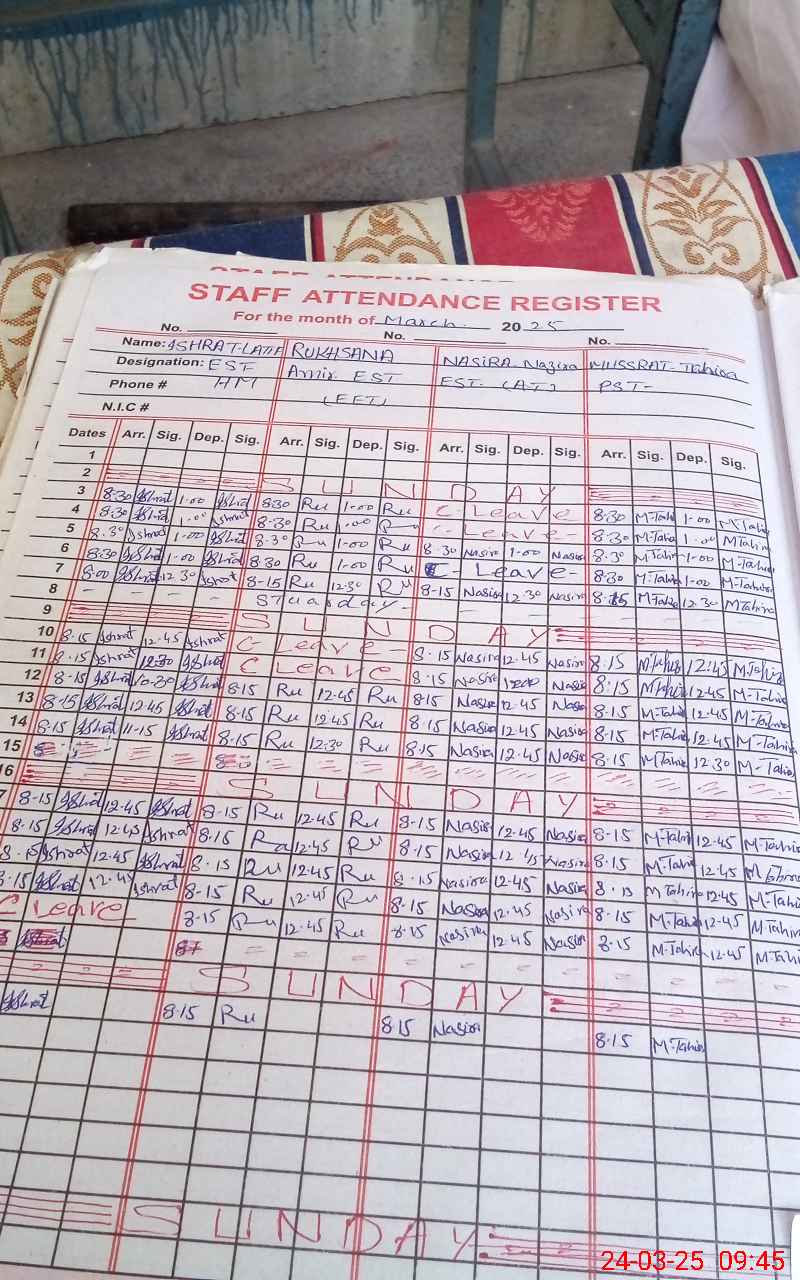 STAFF ATTENDANCE REGISTER
For the month of March 2025
No. No. No.
Name: ISHRAT-LATIF RUKHSANA NASIRA-Nazira MUSSRAT-Tahira
Designation: EST HM Amir EST (EFT) EST- (AT) PST-
Phone #
N.I.C #
Dates Arr. Sig. Dep. Sig. Arr. Sig. Dep. Sig. Arr. Sig. Dep. Sig. Arr. Sig. Dep. Sig.
1
2 SUNDAY
3 8:30 Ishrat 1-00 Ishrat 8:30 Ru 1-00 Ru C-Leave 8:30 M-Tahi 1-00 M-Tahi
4 8:30 Ishrat 1-00 Ishrat 8:30 Ru 1-00 Ru C-Leave- 8:30 M-Tahi 1-00 MTahir
5 8:30 Ishrat 1-00 Ishrat 8:30 Ru 1-00 Ru 8:30 Nasir 1-00 Nasir 8:30 M-Tahir 1-00 M-Tahir
6 8:30 Ishrat 1-00 Ishrat 8:30 Ru 1-00 Ru C-Leave- 8:30 M-Tahi 1-00 M-Tahira
7 8-00 Ishrat 12:30 Ishrat 8-15 Ru 12:30 Ru 8-15 Nasira 12:30 Nasir 8:15 M-Tahi 12:30 M-Tahira
8
9 SUNDAY
10 8-15 Ishrat 12-45 Ishrat C-Leave 8-15 Nasira 12-45 Nasir 8:15 12:45
11 8-15 Ishrat 12:30 Ishrat C Leave 8-15 Nasira Nasir 8:15 12-45 M-Tahir
12 8-15 Ishrat 10-30 Ishrat 8:15 Ru 12:45 Ru 8:15 Nasir 12-45 Nasir 8-15 M-Tahi 12-45 M-Tahira
13 8-15 Ishrat 12-45 Ishrat 8-15 Ru 12:45 Ru 8-15 Nasira 12-45 Nasir 8-15 M-Tahi 12-45 M-Tahira
14 8-15 Ishrat 11-15 Ishrat 8-15 Ru 12:30 Ru 8:15 Nasira 12-45 Nasir 8-15 M-Tahir 12-30 M-Tahir
15
16 SUNDAY
7 8-15 Ishrat 12-45 Ishrat 8-15 Ru 12-45 Ru 8-15 Nasira 12-45 Nasir 8-15 M-Tahir 12-45 M-Tahira
8-15 Ishrat 12-45 Ishrat 8-15 Ru 12-45 Ru 8-15 Nasira 12-45 Nasira 8-15 M-Tahir 12-45
8-15 Ishrat 12-45 Ishrat 8-15 Ru 12-45 Ru 8-15 Nasira 12-45 Nasir 8-15 M Tahira 12-45 M-Tahi
8-15 Ishrat 12-45 Ishrat 8-15 Ru 12-45 Ru 8-15 Nasira 12-45 Nasira 8-15 M-Tahi 12-45 M-Tahira
C Leave 8-15 Ru 12-45 Ru 8-15 Nasira 12-45 Nasir 8-15 M-Tahir 12-45 M-Tahi
SUNDAY
Ishrat 8-15 Ru 8-15 Nasira 8-15 M-Tahir
SUNDAY
24-03-25 09:45